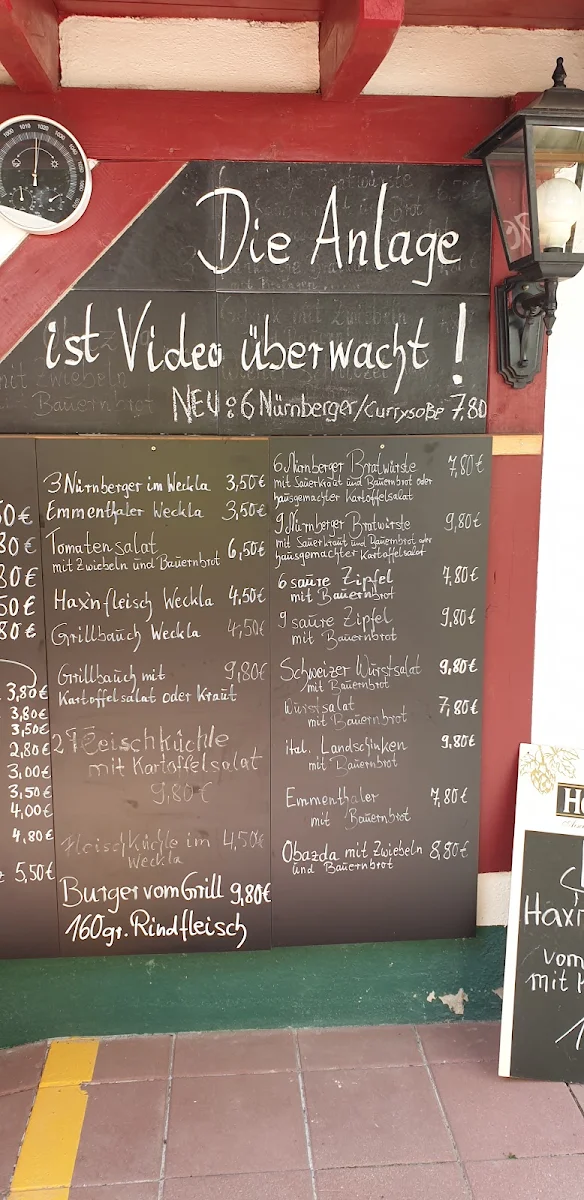 Die Anlage
ist Video überwacht !
NEU: 6 Nürnberger/Currysoße 7,80
3 Nürnberger im Weckla 3,50€
Emmenthaler Weckla 3,50€
Tomatensalat 6,50€
mit Zwiebeln und Bauernbrot
Hax'nfleisch Weckla 4,50€
Grillbauch Weckla 4,50€
Grillbauch mit 9,80€
Kartoffelsalat oder Kraut
2 Fleischküchle
mit Kartoffelsalat
9,80€
Fleischküchle im 4,50€
Weckla
Burger vom Grill 9,80€
160gr. Rindfleisch
6 Nürnberger Bratwürste 7,80€
mit Sauerkraut und Bauernbrot oder
hausgemachter Kartoffelsalat
9 Nürnberger Bratwürste 9,80€
mit Sauerkraut und Bauernbrot oder
hausgemachter Kartoffelsalat
6 saure Zipfel 7,80€
mit Bauernbrot
9 saure Zipfel 9,80€
mit Bauernbrot
Schweizer Wurstsalat 9,80€
mit Bauernbrot
Wurstsalat 7,80€
mit Bauernbrot
ital. Landschinken 9,80€
mit Bauernbrot
Emmenthaler 7,80€
mit Bauernbrot
Obazda mit Zwiebeln 8,80€
und Bauernbrot
3,80€
3,80€
3,50€
2,80€
3,00€
3,50€
4,00€
4,80€
5,50€
Hax'n
vom
mit K